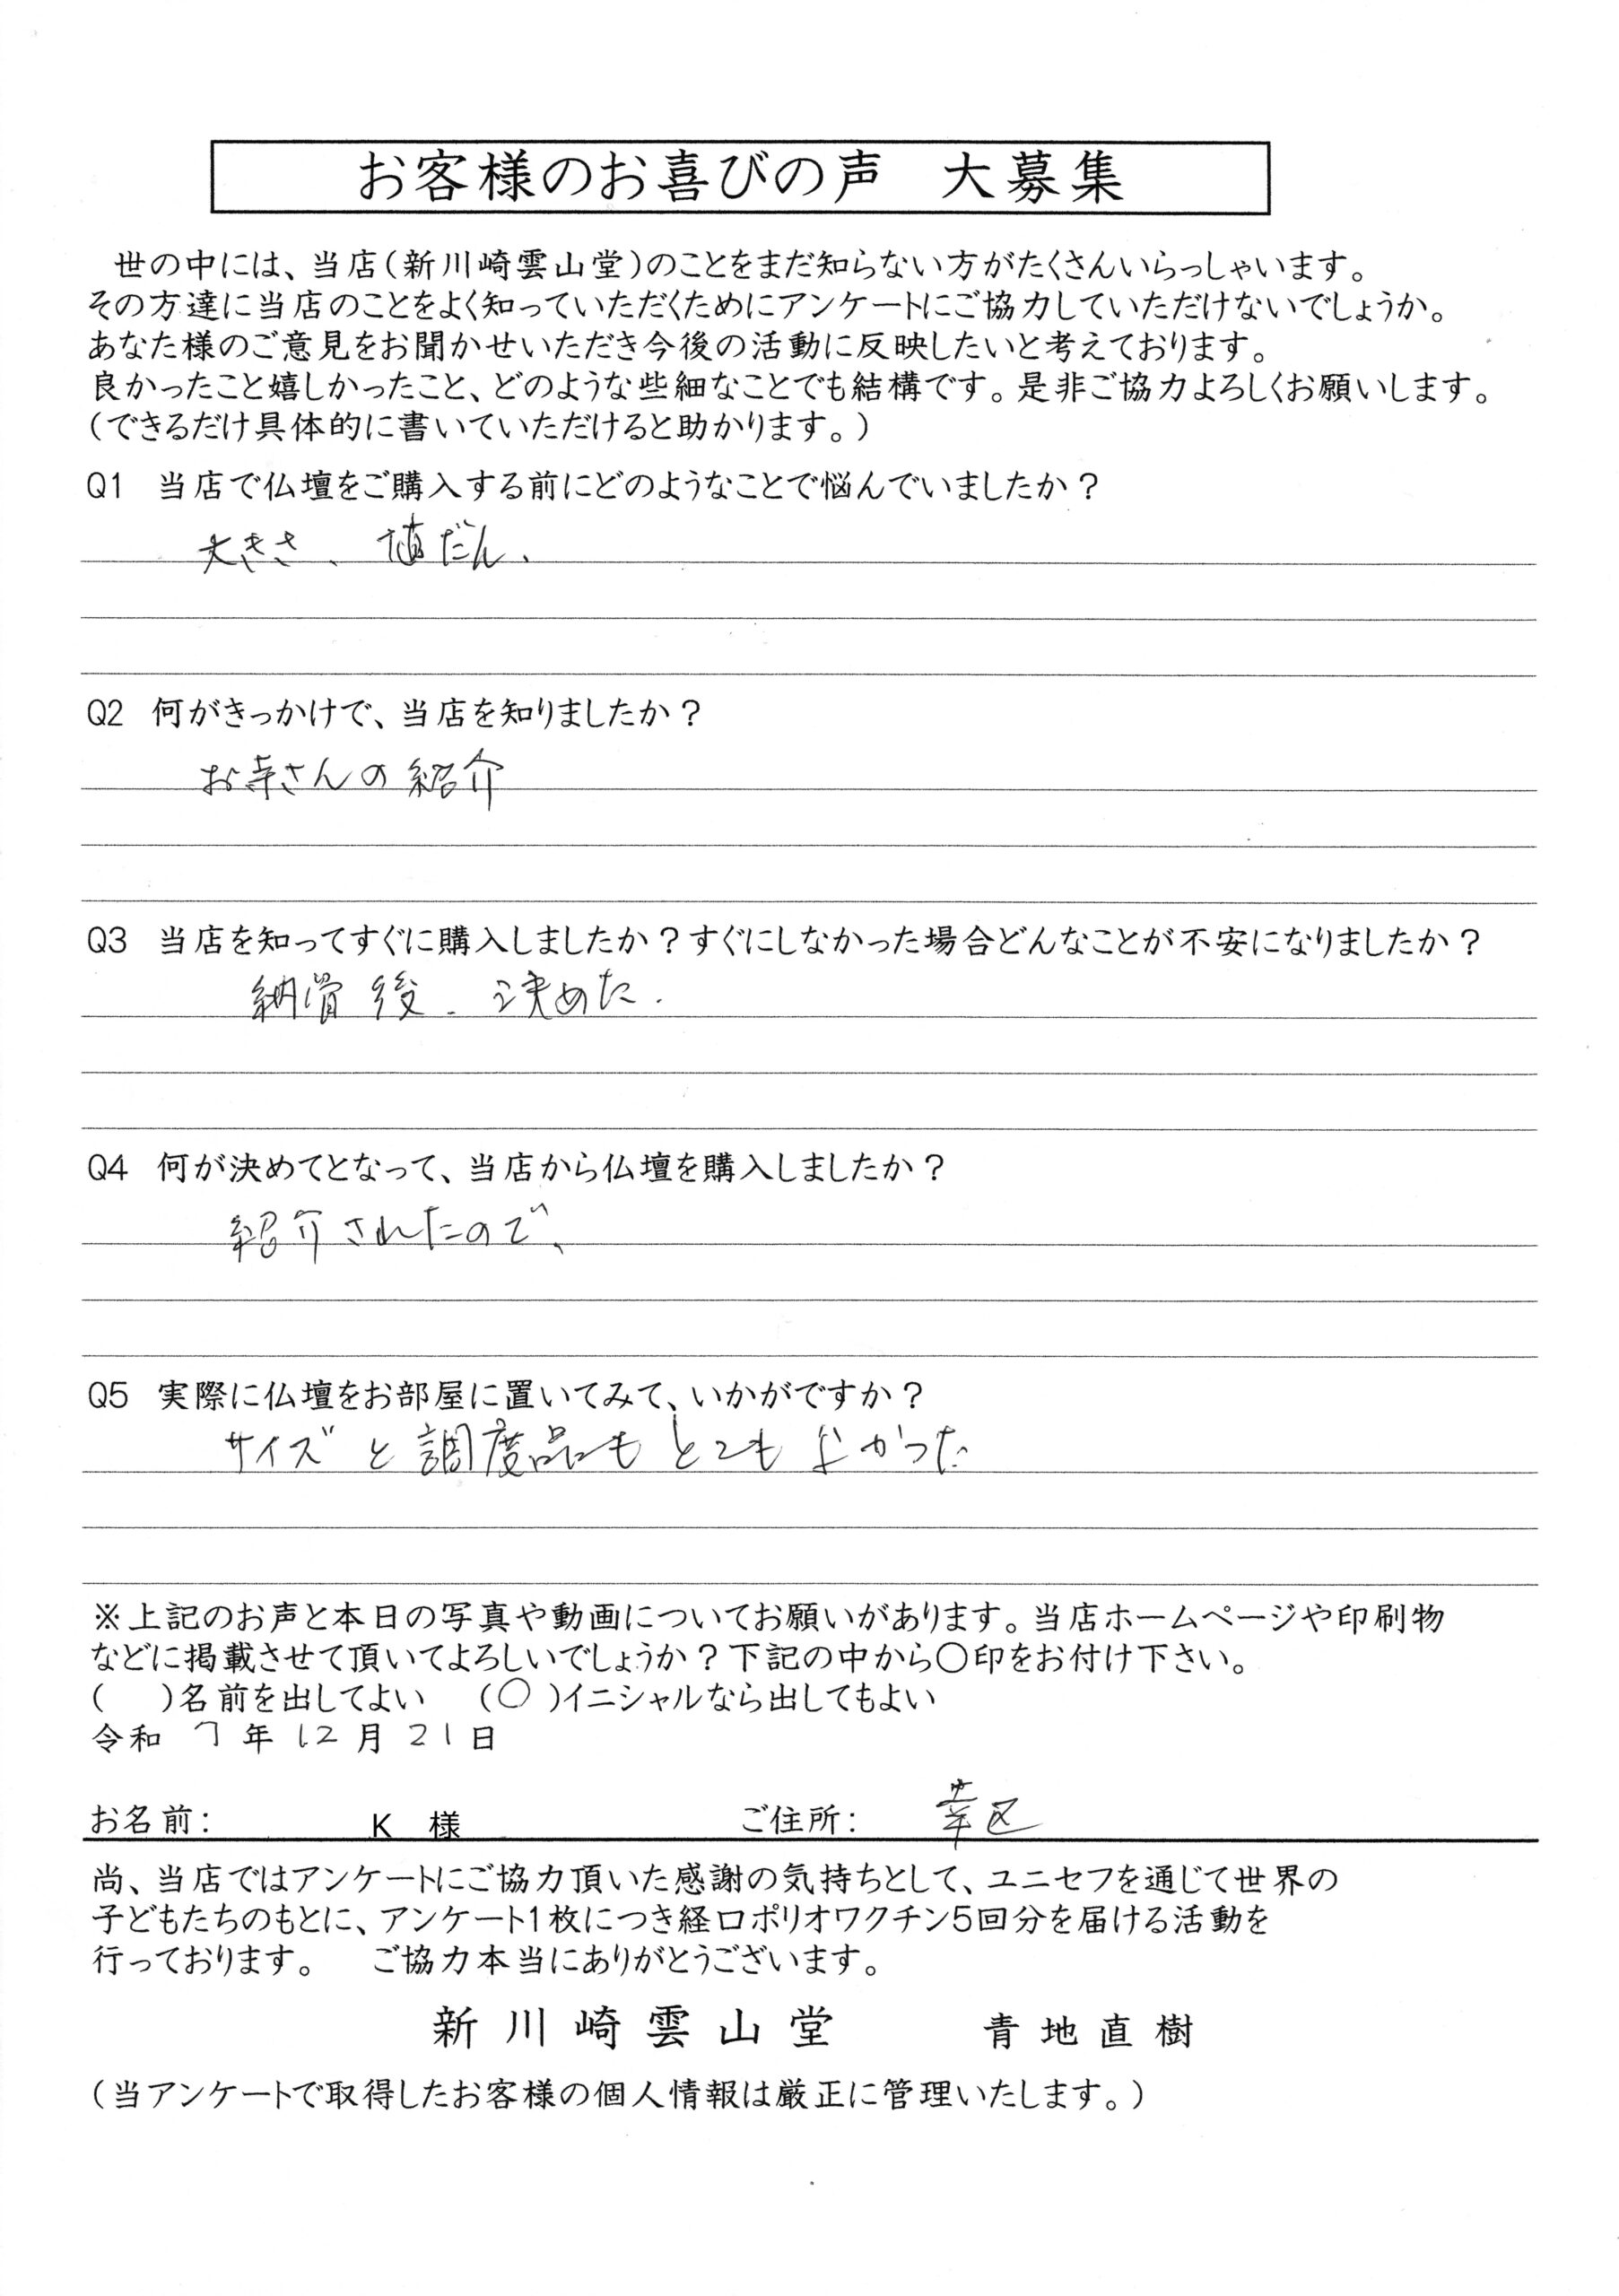 お客様のお喜びの声　大募集
世の中には、当店（新川崎雲山堂）のことをまだ知らない方がたくさんいらっしゃいます。
その方達に当店のことをよく知っていただくためにアンケートにご協力していただけないでしょうか。
あなた様のご意見をお聞かせいただき今後の活動に反映したいと考えております。
良かったこと嬉しかったこと、どのような些細なことでも結構です。是非ご協力よろしくお願いします。
（できるだけ具体的に書いていただけると助かります。）
Q1　当店で仏壇をご購入する前にどのようなことで悩んでいましたか？
大きさ、値だん、
Q2　何がきっかけで、当店を知りましたか？
お寺さんの紹介
Q3　当店を知ってすぐに購入しましたか？すぐにしなかった場合どんなことが不安になりましたか？
納骨後、決めた．
Q4　何が決めてとなって、当店から仏壇を購入しましたか？
紹介されたので、
Q5　実際に仏壇をお部屋に置いてみて、いかがですか？
サイズと調度品もとてもよかった
※上記のお声と本日の写真や動画についてお願いがあります。当店ホームページや印刷物
などに掲載させて頂いてよろしいでしょうか？下記の中から〇印をお付け下さい。
（　）名前を出してよい　（〇）イニシャルなら出してもよい
令和 7 年 12 月 21 日
お名前：　K　様　ご住所：　幸区
尚、当店ではアンケートにご協力頂いた感謝の気持ちとして、ユニセフを通じて世界の
子どもたちのもとに、アンケート1枚につき経口ポリオワクチン5回分を届ける活動を
行っております。　ご協力本当にありがとうございます。
新川崎雲山堂　青地直樹
（当アンケートで取得したお客様の個人情報は厳正に管理いたします。）